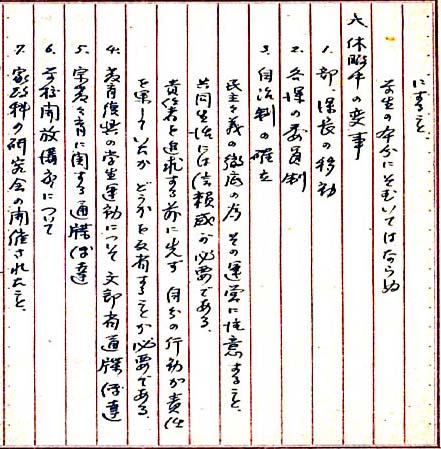 にすること。
学生の本分にそむいてはならぬ
六 休暇中の変事
1. 部、課長の移動
2. 各課の委員制
3. 自治制の確立
民主々義の徹底の為 その運営に注意すること。
共同生活には信頼感が必要である。
責任者を追求する前に先ず 自分の行動が責任
を果していたか どうかを反省することが必要である。
4. 教育復興の学生運動について 文部省通牒伝達
5. 宗教々育に関する通牒伝達
6. 学校開放講座について
7. 家政科の研究会の開催されたこと。